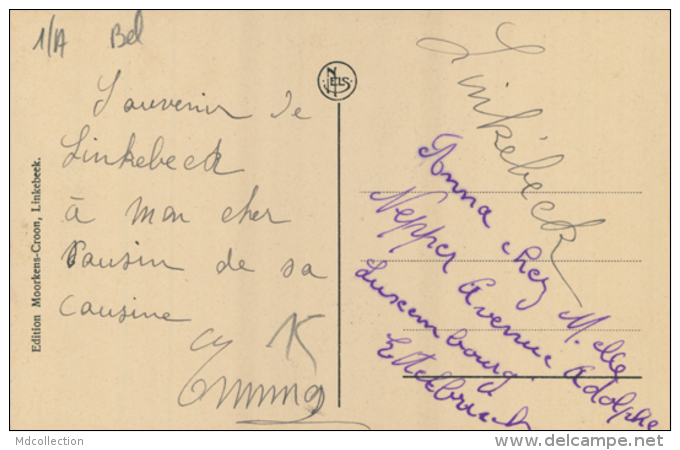 1/A Bel
Souvenir de
Linkebeek
à mon cher
Cousin de sa
cousine
Emma
K
NELS
Edition Moorkens-Croon, Linkebeek.
Linkébeek
Anna chez M.elle
Nepper Avenue Adolphe
Luxembourg.
Ettelbruck
Mdcollection
delcampe.net